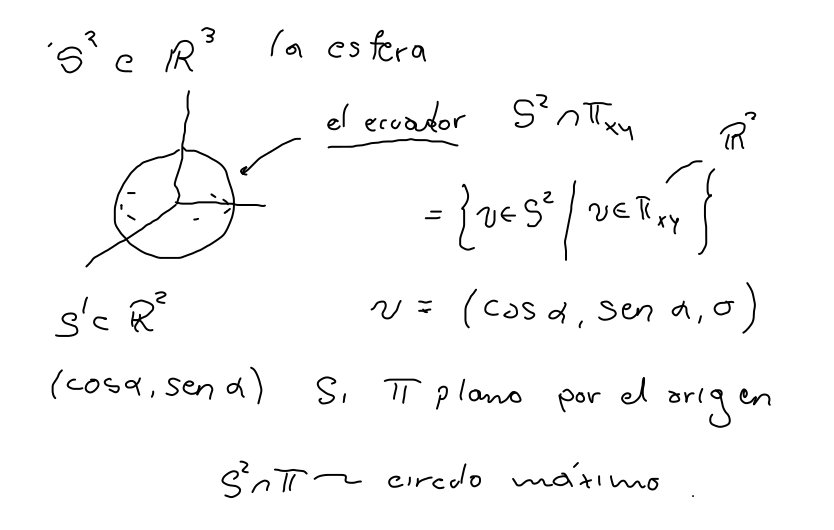 S² ⊂ ℝ³ la esfera
el ecuador S² ∩ Π_xy ℝ²
= { v ∈ S² | v ∈ Π_xy }
S¹ ⊂ ℝ² v = (cos α, sen α, 0)
(cos α, sen α) Si Π plano por el origen
S² ∩ Π ~ circulo máximo.